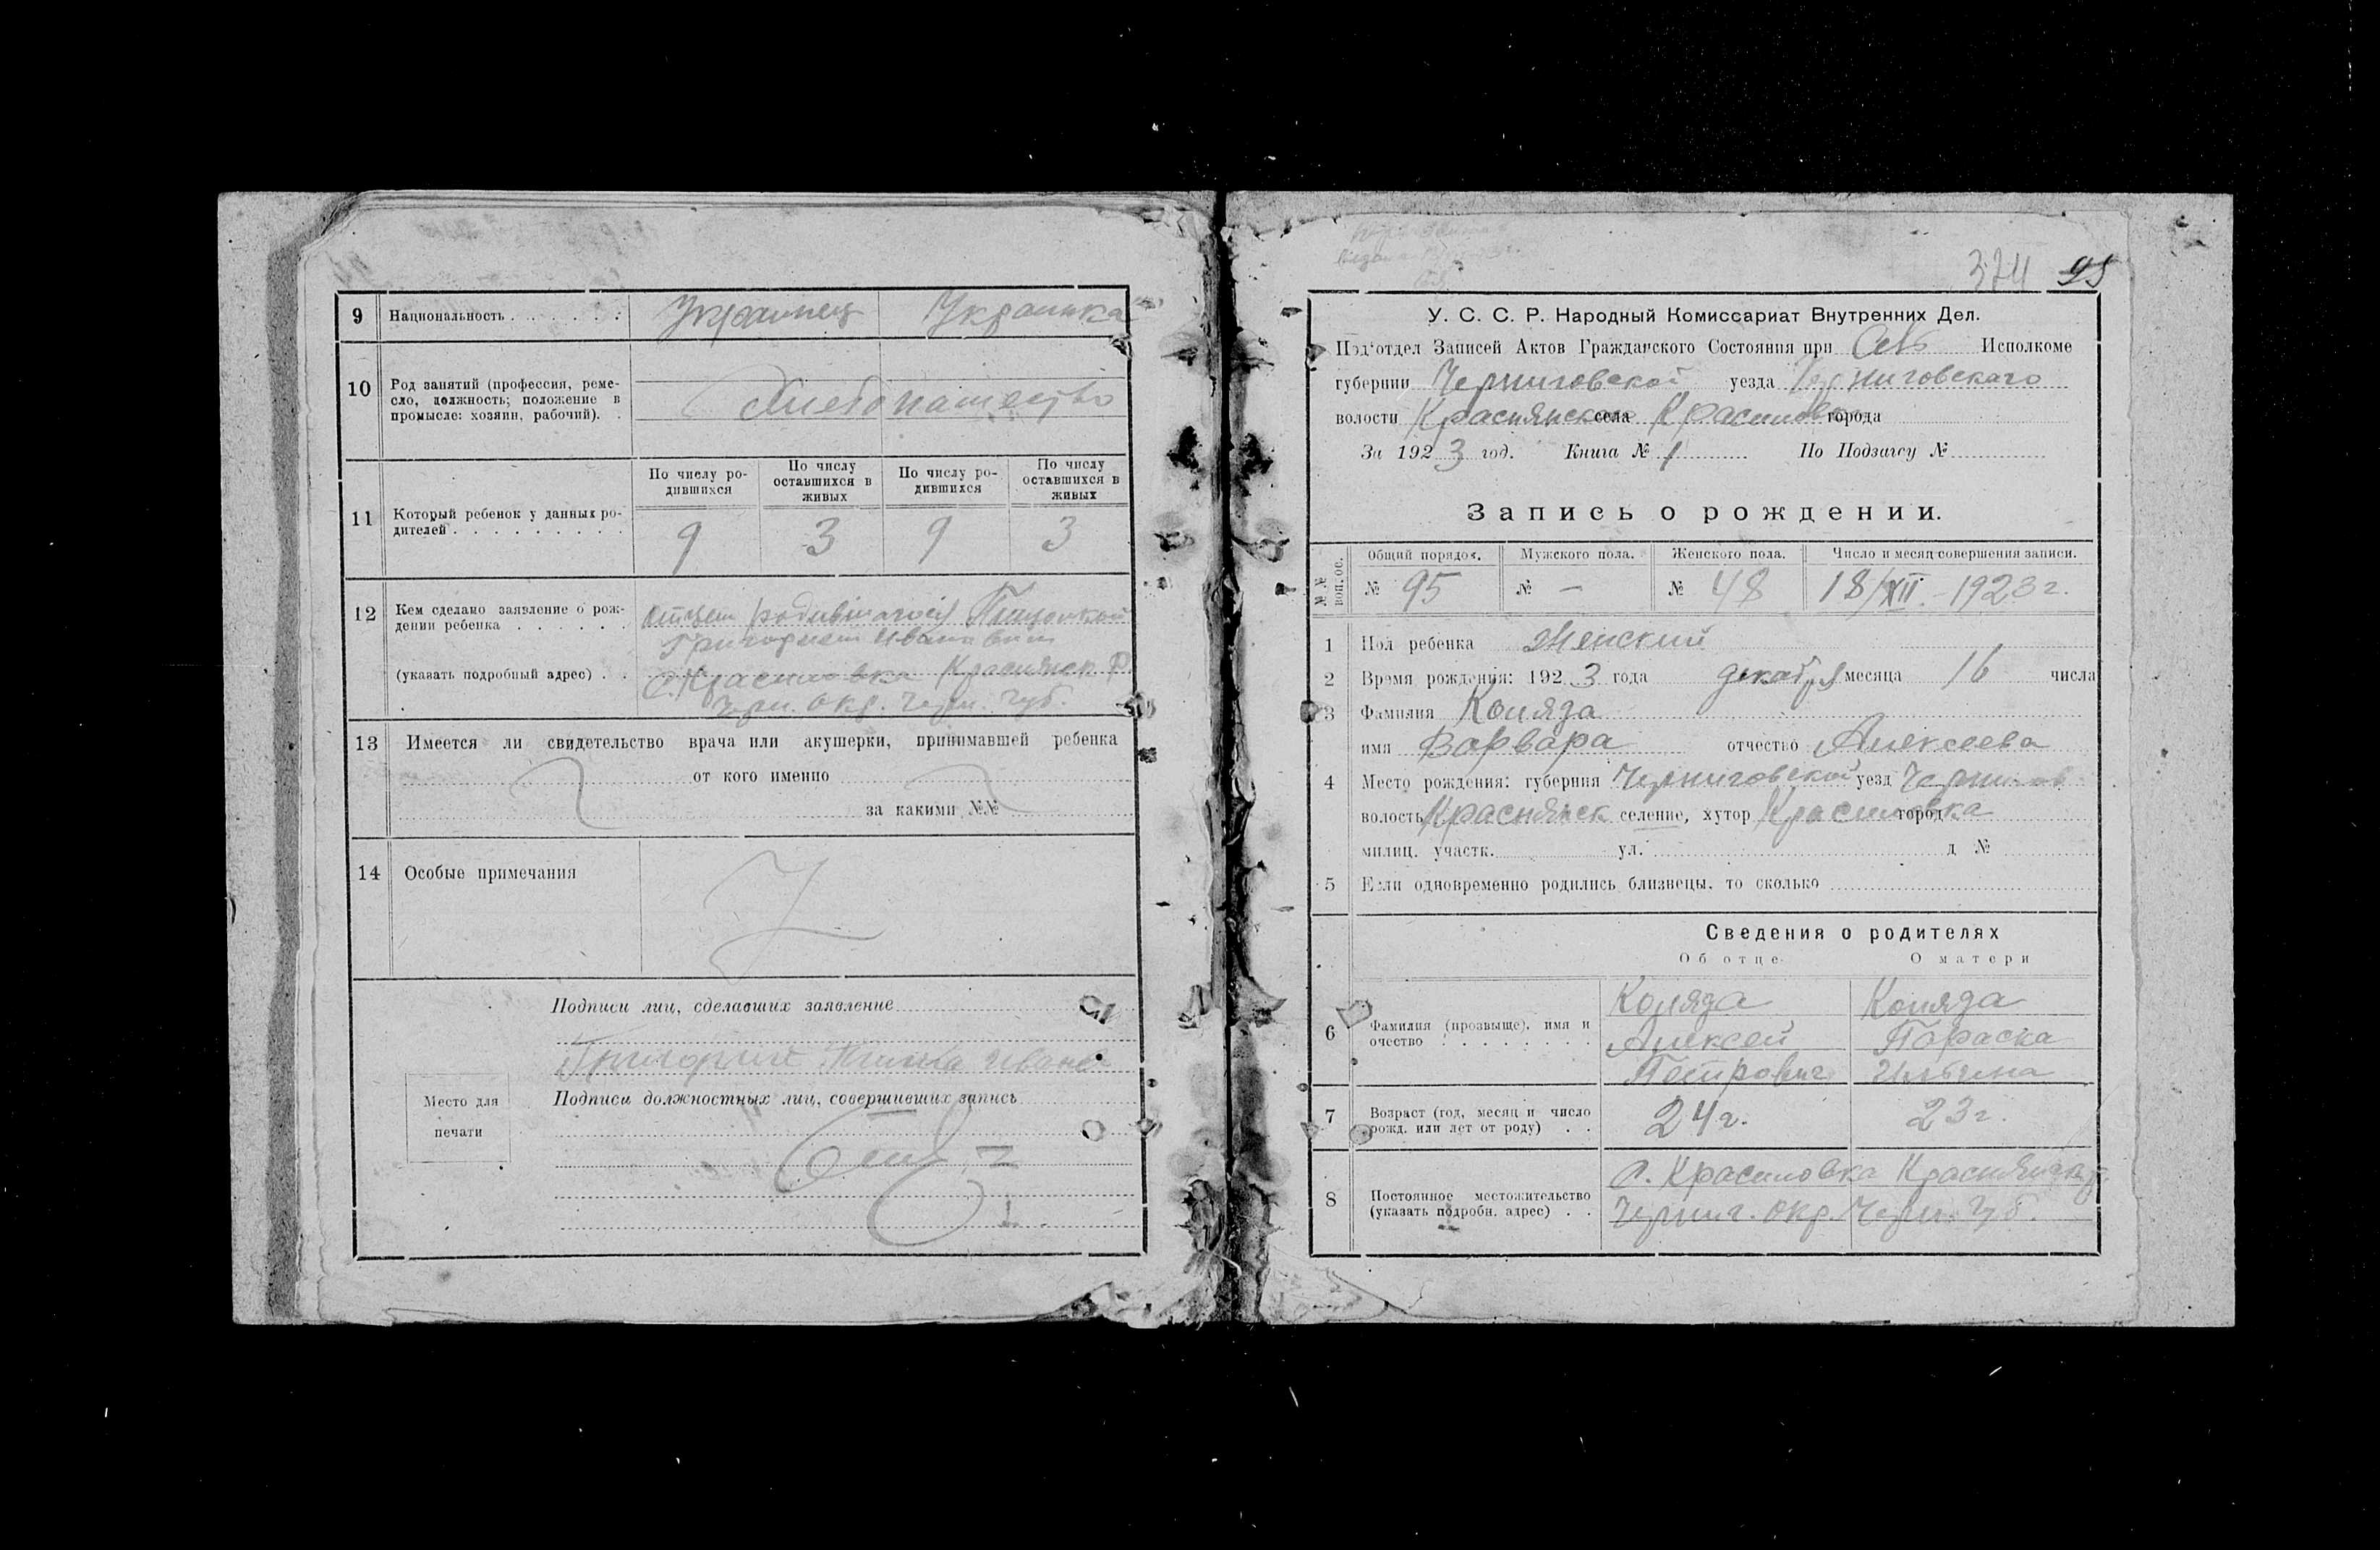 9 Национальность . . . . . . Украинец Украинка
10 Род занятий (профессия, реме-
сло, должность; положение в
промысле: хозяин, рабочий). .
Хлебопашество
По числу ро-
дившихся
По числу
оставшихся в
живых
По числу ро-
дившихся
По числу
оставшихся в
живых
11 Который ребенок у данных ро-
дителей . . . . . . . . .
9 3 9 3
12 Кем сделано заявление о рож-
дении ребенка . . . . . .
отцем родившагося
Григорием Ивановым
(указать подробный адрес) . .
С. Красиловка Краснянск. Р.
Черн. Окр. Черн. Губ.
13 Имеется ли свидетельство врача или акушерки, принимавшей ребенка
от кого именно
за какими №№
14 Особые примечания
Подписи лиц, сделавших заявление
Подписи должностных лиц, совершивших запись
Место для
печати
374 95
У. С. С. Р. Народный Комиссариат Внутренних Дел.
Под'отдел Записей Актов Гражданского Состояния при Исполкоме
губернии Черниговской уезда Черниговскаго
волости Краснянской села Красиловка города
За 1923 год. Книга № 1 По Подзагсу №
Запись о рождении.
№№ воп.ос.
Общий порядок. Мужского пола. Женского пола. Число и месяц совершения записи.
№ 95 № – № 48 18/XII – 1923 г.
1 Пол ребенка Женский
2 Время рождения: 1923 года декабря месяца 16 числа
3 Фамилия Коляда
имя Варвара отчество Алексеева
4 Место рождения: губерния Черниговской уезд Чернигов
волость Краснянск селение, хутор Красиловка город
милиц. участк. ул. д №
5 Если одновременно родились близнецы, то сколько
Сведения о родителях
Об отце О матери
6 Фамилия (прозвыще), имя и
очество . . . . . . . . .
Коляда Коляда
Алексей Параска
Петрович Ильина
7 Возраст (год, месяц и число
рожд. или лет от роду) . .
24 г. 23 г.
8 Постоянное местожительство
(указать подробн. адрес) . .
С. Красиловка Краснянск. р.
Черниг. Окр. Черн. Губ.